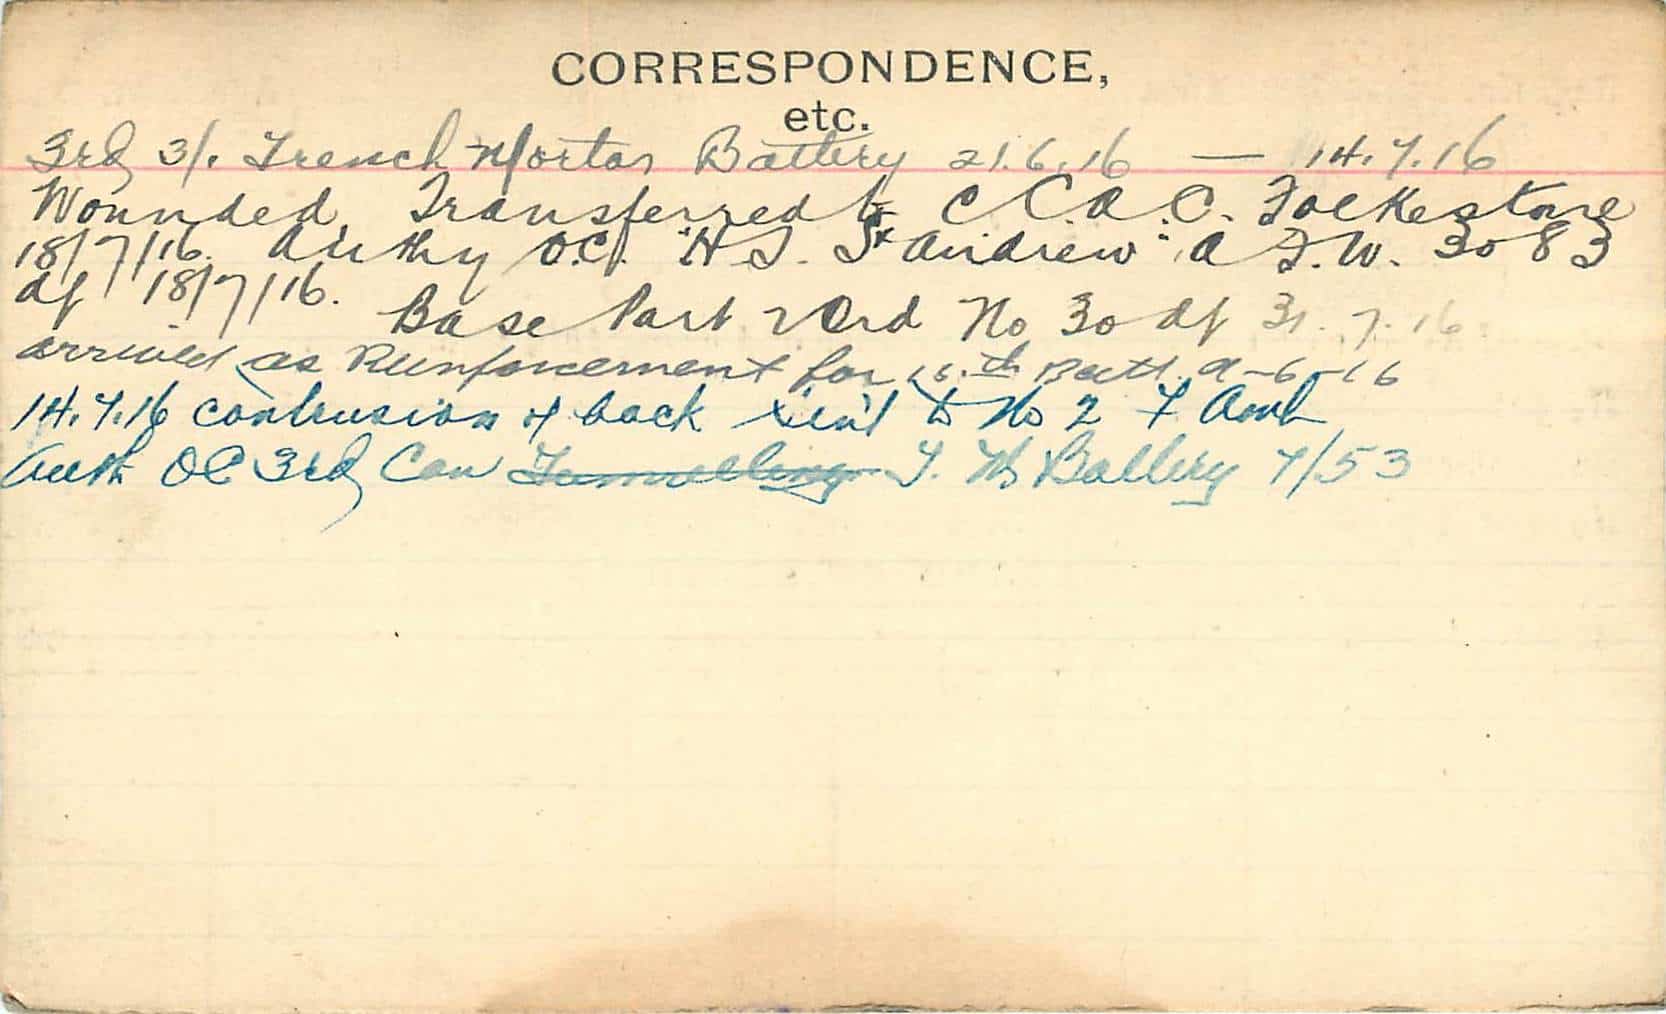 CORRESPONDENCE,
etc.
3rd 3/. Trench Mortar Battery 21.6.16 — 14.7.16
Wounded Transferred to C C.A.C. Folkestone
18/7/16. Authy O.C. "H.S. St Andrew" A F.W. 3083
df 18/7/16.
Base Part 2 Ord No 30 df 31.7.16
arrived as Reinforcement for 16th Batt. 9-6-16
14.7.16 contusion of back to No 2 F Amb
Auth OC 3rd Can Tunnelling T. M Battery 7/53